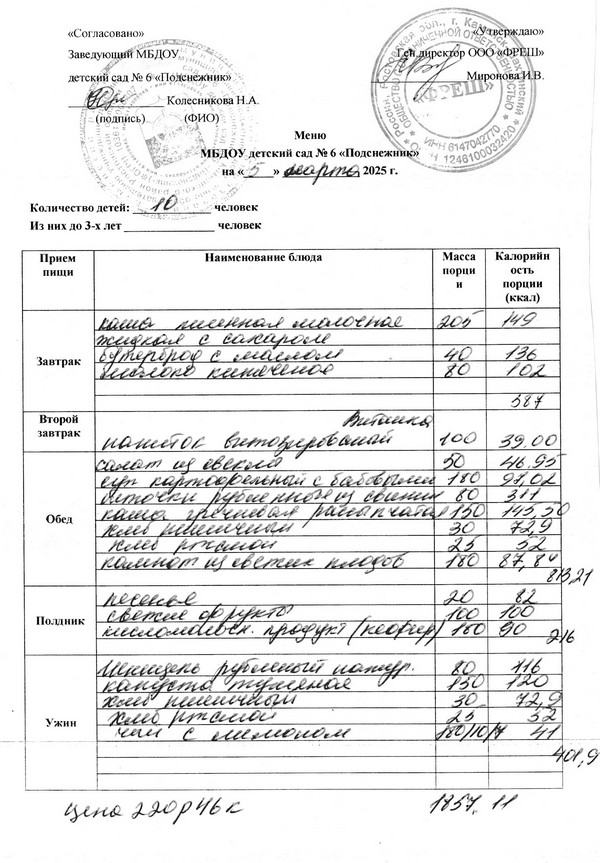 «Согласовано»
«Утверждаю»
Заведующий МБДОУ
Ген.директор ООО «ФРЕШ»
детский сад № 6 «Подснежник»
Миронова И.В.
Колесникова Н.А.
(подпись) (ФИО)
«ФРЕШ»
ИНН 6147042770
ОГРН 1246100032420
Меню
МБДОУ детский сад № 6 «Подснежник»
на «5» марта 2025 г.
Количество детей: 10 человек
Из них до 3-х лет человек
Прием пищи Наименование блюда Масса порции Калорийность порции (ккал)
Завтрак
каша пшенная молочная 205 149
жидкая с сахаром
бутерброд с маслом 40 136
молоко кипяченое 80 102
387
Второй завтрак
Витошка
напиток витозированый 100 39.00
Обед
салат из свеклы 50 46.95
суп картофельный с бобовыми 180 91,02
биточки рубленные из свинин 80 311
каша гречневая рассыпчатая 150 145,50
хлеб пшеничный 30 72,9
хлеб ржаной 25 52
компот из свежих плодов 180 87,84
813,21
Полдник
печенье 20 82
свежие фрукты 100 100
кисломолочн. продукт (кефир) 180 90
216
Ужин
Шницель рубленный натур. 80 116
капуста тушеная 150 120
хлеб пшеничный 30 72,9
хлеб ржаной 25 52
чай с лимоном 180/10/7 41
401,9
цена 220р46к 1857.11